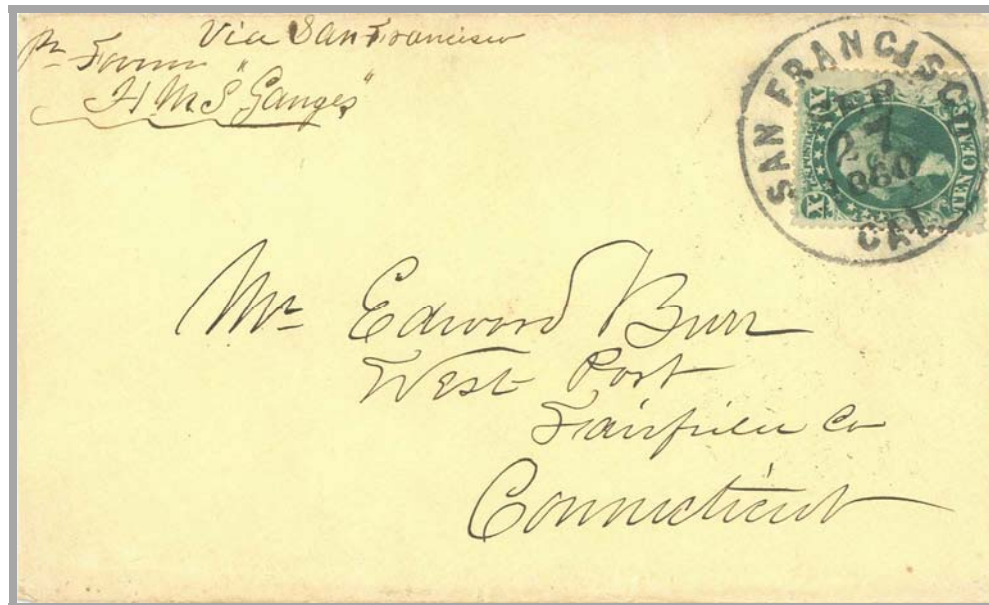 Via San Francisco
Pr
H M S "Ganges"
SAN FRANCISCO
7
1860
CAL
X
TEN CENTS
X
Mr Edward Burr
West Port
Fairfield Co
Connecticut